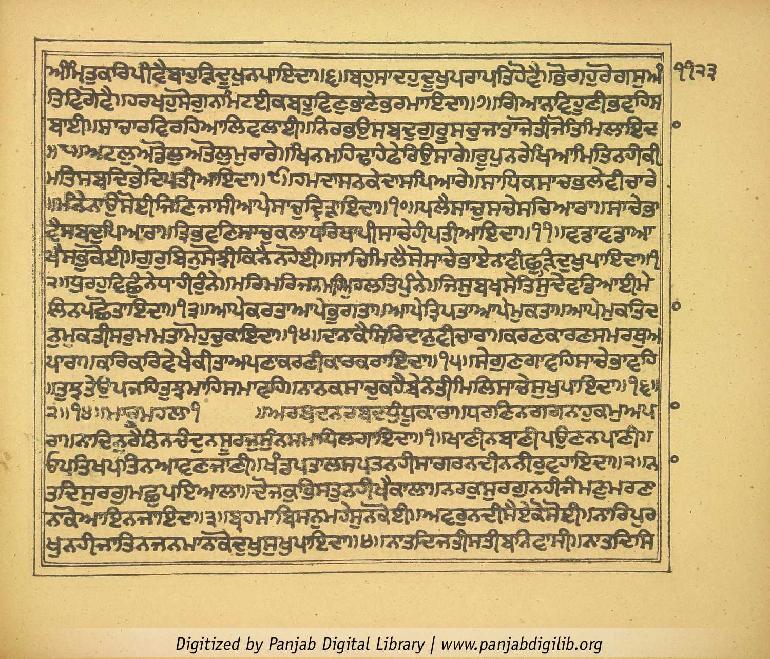 ਅੰਮ੍ਰਿਤੁਕਰਿਪੀਵੈਬਾਹੁੜਿਦੂਖੁਨਪਾਇਦਾ॥੬॥ਬਹੁਸਾਦਹੁਦੂਖੁਪਰਾਪਤਿਹੋਵੈ॥ਭੋਗਹੁਰੋਗਸੁਅੰ ੧੧੨੩
ਤਿਵਿਗੋਵੈ॥ਹਰਖਹੁਸੋਗੁਨਮਿਟਈਕਬਹੂਵਿਣੁਭਾਣੇਭਰਮਾਇਦਾ॥੭॥ਗਿਆਨਵਿਹੂਣੀਭਵਹਿਸ
ਬਾਈ॥ਸਾਚਾਰਵਿਰਹਿਆਲਿਵਲਾਈ॥ਨਿਰਭਉਸਬਦੁਗੁਰੂਸਚੁਜਾਤਾਜੋਤੀਜੋਤਿਮਿਲਾਇਦਾ
॥੮॥ਅਟਲੁਅਡੋਲੁਅਤੋਲੁਮੁਰਾਰੇ॥ਖਿਨਮਹਿਢਾਹੇਫੇਰਿਉਸਾਰੇ॥ਰੂਪੁਨਰੇਖਿਆਮਿਤਿਨਹੀਕੀ
ਮਤਿਸਬਦਿਭੇਦਿਪਤੀਆਇਦਾ॥੯॥ਹਮਦਾਸਨਕੇਦਾਸਪਿਆਰੇ॥ਸਾਧਿਕਸਾਚਭਲੇਵੀਚਾਰੇ
॥ਮੰਨੇਨਾਉਸੋਈਜਿਣਿਜਾਸੀਆਪੇਸਾਚੁਦ੍ਰਿੜਾਇਦਾ॥੧੦॥ਪਲੈਸਾਚੁਸਚੇਸਚਿਆਰਾ॥ਸਾਚੇਭਾ
ਵੈਸਬਦੁਪਿਆਰਾ॥ਤ੍ਰਿਭਵਣਿਸਾਚੁਕਲਾਧਰਿਥਾਪੀਸਾਚੇਹੀਪਤੀਆਇਦਾ॥੧੧॥ਵਡਾਵਡਾਆ
ਖੈਸਭੁਕੋਈ॥ਗੁਰਬਿਨੁਸੋਝੀਕਿਨੈਨਹੋਈ॥ਸਾਚਿਮਿਲੈਸੋਸਾਚੇਭਾਏਨਾਵੀਛੁੜਿਦੁਖੁਪਾਇਦਾ॥੧
੨॥ਧੁਰਹੁਵਿਛੁੰਨੇਧਾਹੀਰੁੰਨੇ॥ਮਰਿਮਰਿਜਨਮਹਿਮੁਹਲਤਿਪੁੰਨੇ॥ਜਿਸੁਬਖਸੇਤਿਸੁਦੇਵਡਿਆਈਮੇ
ਲਿਨਪਛੋਤਾਇਦਾ॥੧੩॥ਆਪੇਕਰਤਾਆਪੇਭੁਗਤਾ॥ਆਪੇਤ੍ਰਿਪਤਾਆਪੇਮੁਕਤਾ॥ਆਪੇਮੁਕਤਿਦ
ਨੁਮੁਕਤੀਸਰੁਮਮਤਾਮੋਹੁਚੁਕਾਇਦਾ॥੧੪॥ਦਾਨਾਕੈਸਿਰਿਦਾਨੁਵੀਚਾਰਾ॥ਕਰਣਕਾਰਣਸਮਰਥੁਅ
ਪਾਰਾ॥ਕਰਿਕਰਿਵੇਖੈਕੀਤਾਅਪਣਾਕਰਣੀਕਾਰਕਰਾਇਦਾ॥੧੫॥ਸੇਗੁਣਗਾਵਹਿਸਾਚੇਭਾਵਹਿ
॥ਤੁਝਤੇਉਪਜਹਿਤੁਝਮਾਹਿਸਮਾਵਹਿ॥ਨਾਨਕਸਾਚੁਕਹੈਬੇਨੰਤੀਮਿਲਿਸਾਚੇਸੁਖੁਪਾਇਦਾ॥੧੬॥
੨॥੧੪॥ਮਾਰੂਮਹਲਾ੧ ॥ਅਰਬਦਨਰਬਦਧੁੰਧੂਕਾਰਾ॥ਧਰਣਿਨਗਗਨਾਹੁਕਮੁਅਪਾ
ਰਾ॥ਨਾਦਿਨੁਰੈਨਿਨਚੰਦੁਨਸੂਰਜੁਸੁੰਨਸਮਾਧਿਲਗਾਇਦਾ॥੧॥ਖਾਣੀਨਬਾਣੀਪਉਣਨਪਾਣੀ॥
ਓਪਤਿਖਪਤਿਨਆਵਣਜਾਣੀ॥ਖੰਡਪਤਾਲਸਪਤਨਹੀਸਾਗਰਨਦੀਨਨੀਰੁਵਹਾਇਦਾ॥੨॥ਨਾ
ਤਦਿਸੁਰਗੁਮਛੁਪਇਆਲਾ॥ਦੋਜਕੁਭਿਸਤੁਨਹੀਖੈਕਾਲਾ॥ਨਰਕੁਸੁਰਗੁਨਹੀਜੰਮਣੁਮਰਣਾ
ਨਾਕੋਆਇਨਜਾਇਦਾ॥੩॥ਬ੍ਰਹਮਾਬਿਸਨੁਮਹੇਸੁਨਕੋਈ॥ਅਵਰੁਨਦੀਸੈਏਕੋਸੋਈ॥ਨਾਰਿਪੁਰ
ਖੁਨਹੀਜਾਤਿਨਜਨਮਾਨਾਕੋਦੁਖੁਸੁਖੁਪਾਇਦਾ॥੪॥ਨਾਤਦਿਜਤੀਸਤੀਬਨਵਾਸੀ॥ਨਾਤਦਿਸਿ
Digitized by Panjab Digital Library | www.panjabdigilib.org